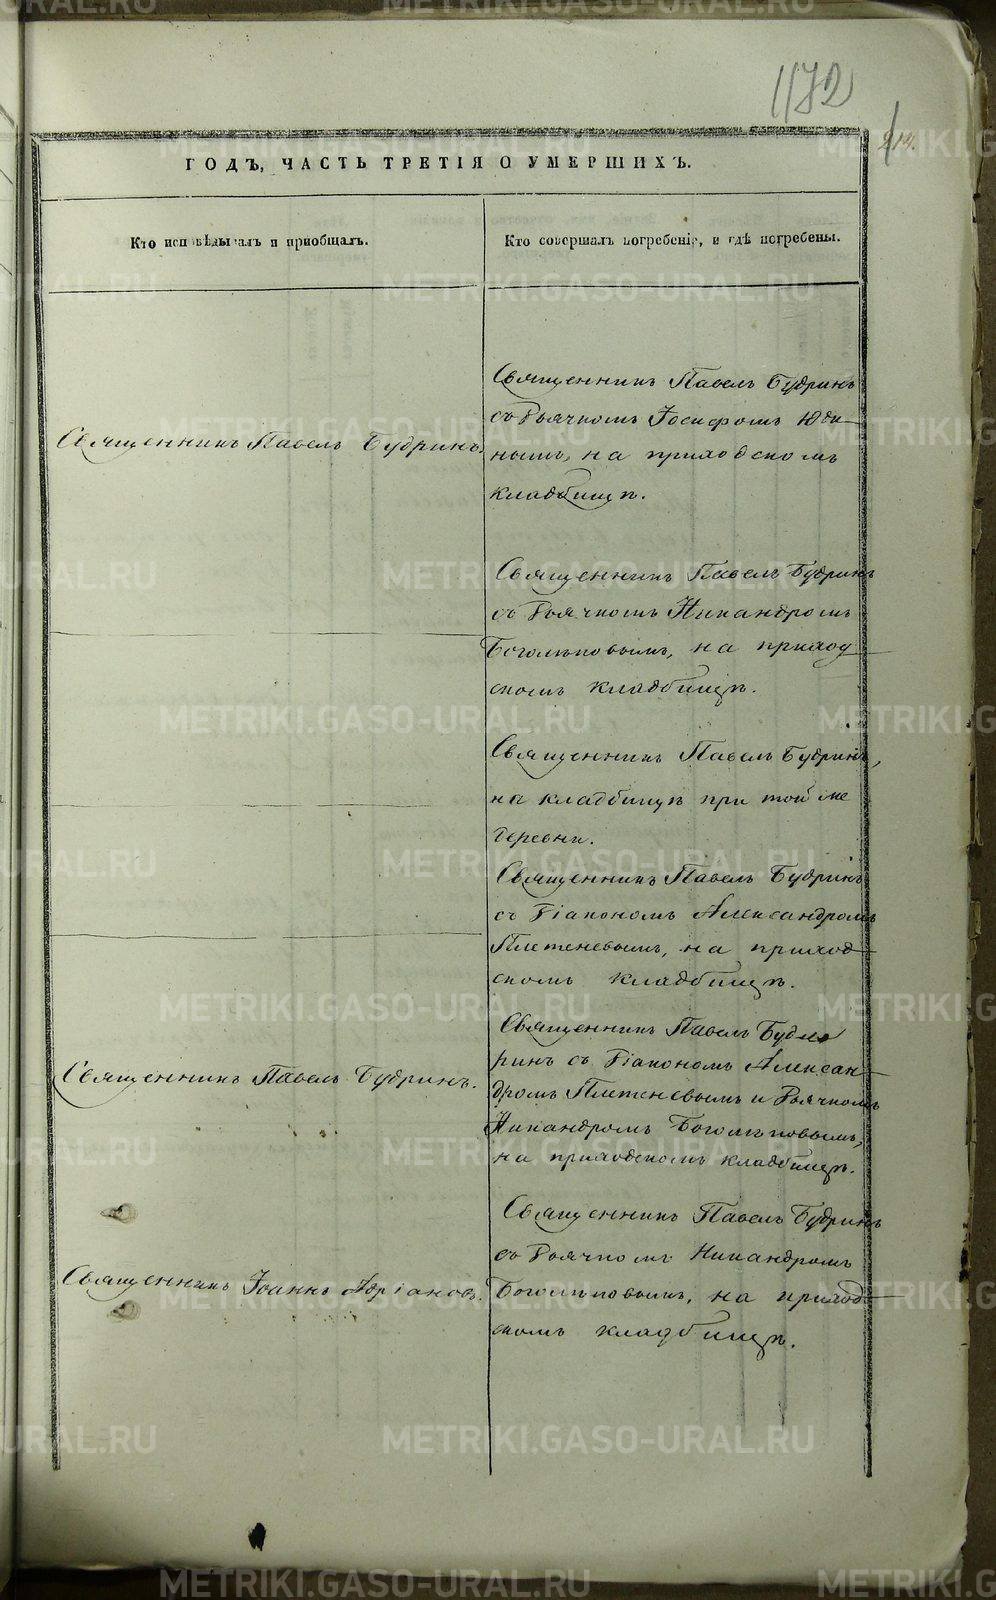 1172
214.
ГОДЪ, ЧАСТЬ ТРЕТІЯ О УМЕРШИХЪ.
Кто исповѣдывалъ и приобщалъ.
Кто совершалъ погребеніе, и гдѣ погребены.
Священникъ Павелъ Будринъ.
Священникъ Павелъ Будринъ
съ Дьячкомъ Іосифомъ Юди-
нымъ, на приходскомъ
кладбищѣ.
Священникъ Павелъ Будринъ
съ Дьячкомъ Никандромъ
Боголѣповымъ, на приход-
скомъ кладбищѣ.
Священникъ Павелъ Будринъ,
на кладбищѣ при той же
деревни.
Священникъ Павелъ Будринъ
съ Діакономъ Александромъ
Плетеневымъ, на приход-
скомъ кладбищѣ.
Священникъ Павелъ Будринъ.
Священникъ Павелъ Буд
ринъ съ Діакономъ Алексан-
дромъ Плетеневымъ и Дьячкомъ
Никандромъ Боголѣповымъ,
на приходскомъ кладбищѣ.
Священникъ Іоаннъ Адріановъ.
Священникъ Павелъ Будринъ
съ Дьячкомъ Никандромъ
Боголѣповымъ, на приход-
скомъ кладбищѣ.
METRIKI.GASO-URAL.RU